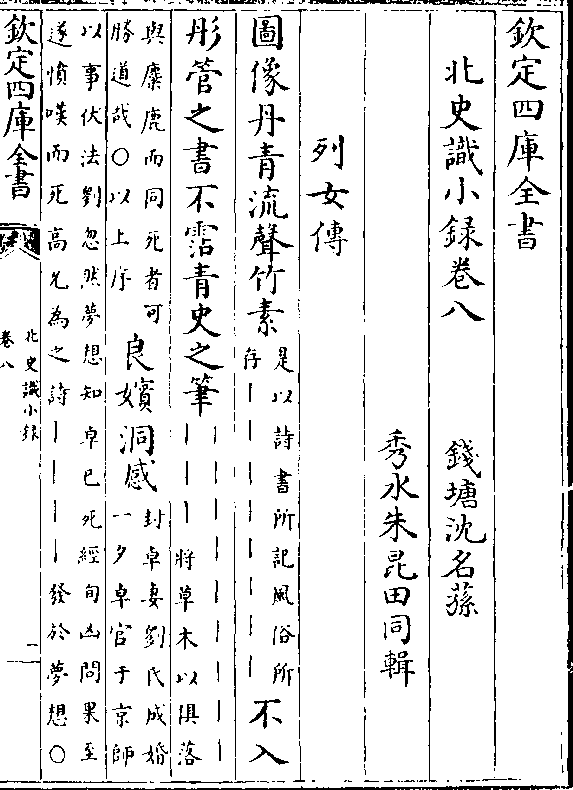 欽定四庫全書
北史識小録卷八　錢塘沈名蓀
秀水朱昆田同輯
列女傳
圖像丹青流聲竹素　是以詩書所記風俗所存｜｜｜｜｜｜｜｜　不入
彤管之書不霑青史之筆　｜｜｜｜｜｜｜｜｜｜｜｜將草木以俱落
與麋鹿而同死者可勝道哉○以上序　良嬪洞感　封卓妻劉氏成婚一夕卓官于京師
以事伏法劉忽然夢想知卓已死經旬凶問果至
遂憤嘆而死高允為之詩｜｜｜｜發於夢想○
欽定四庫全書
北史識小録
卷八
一